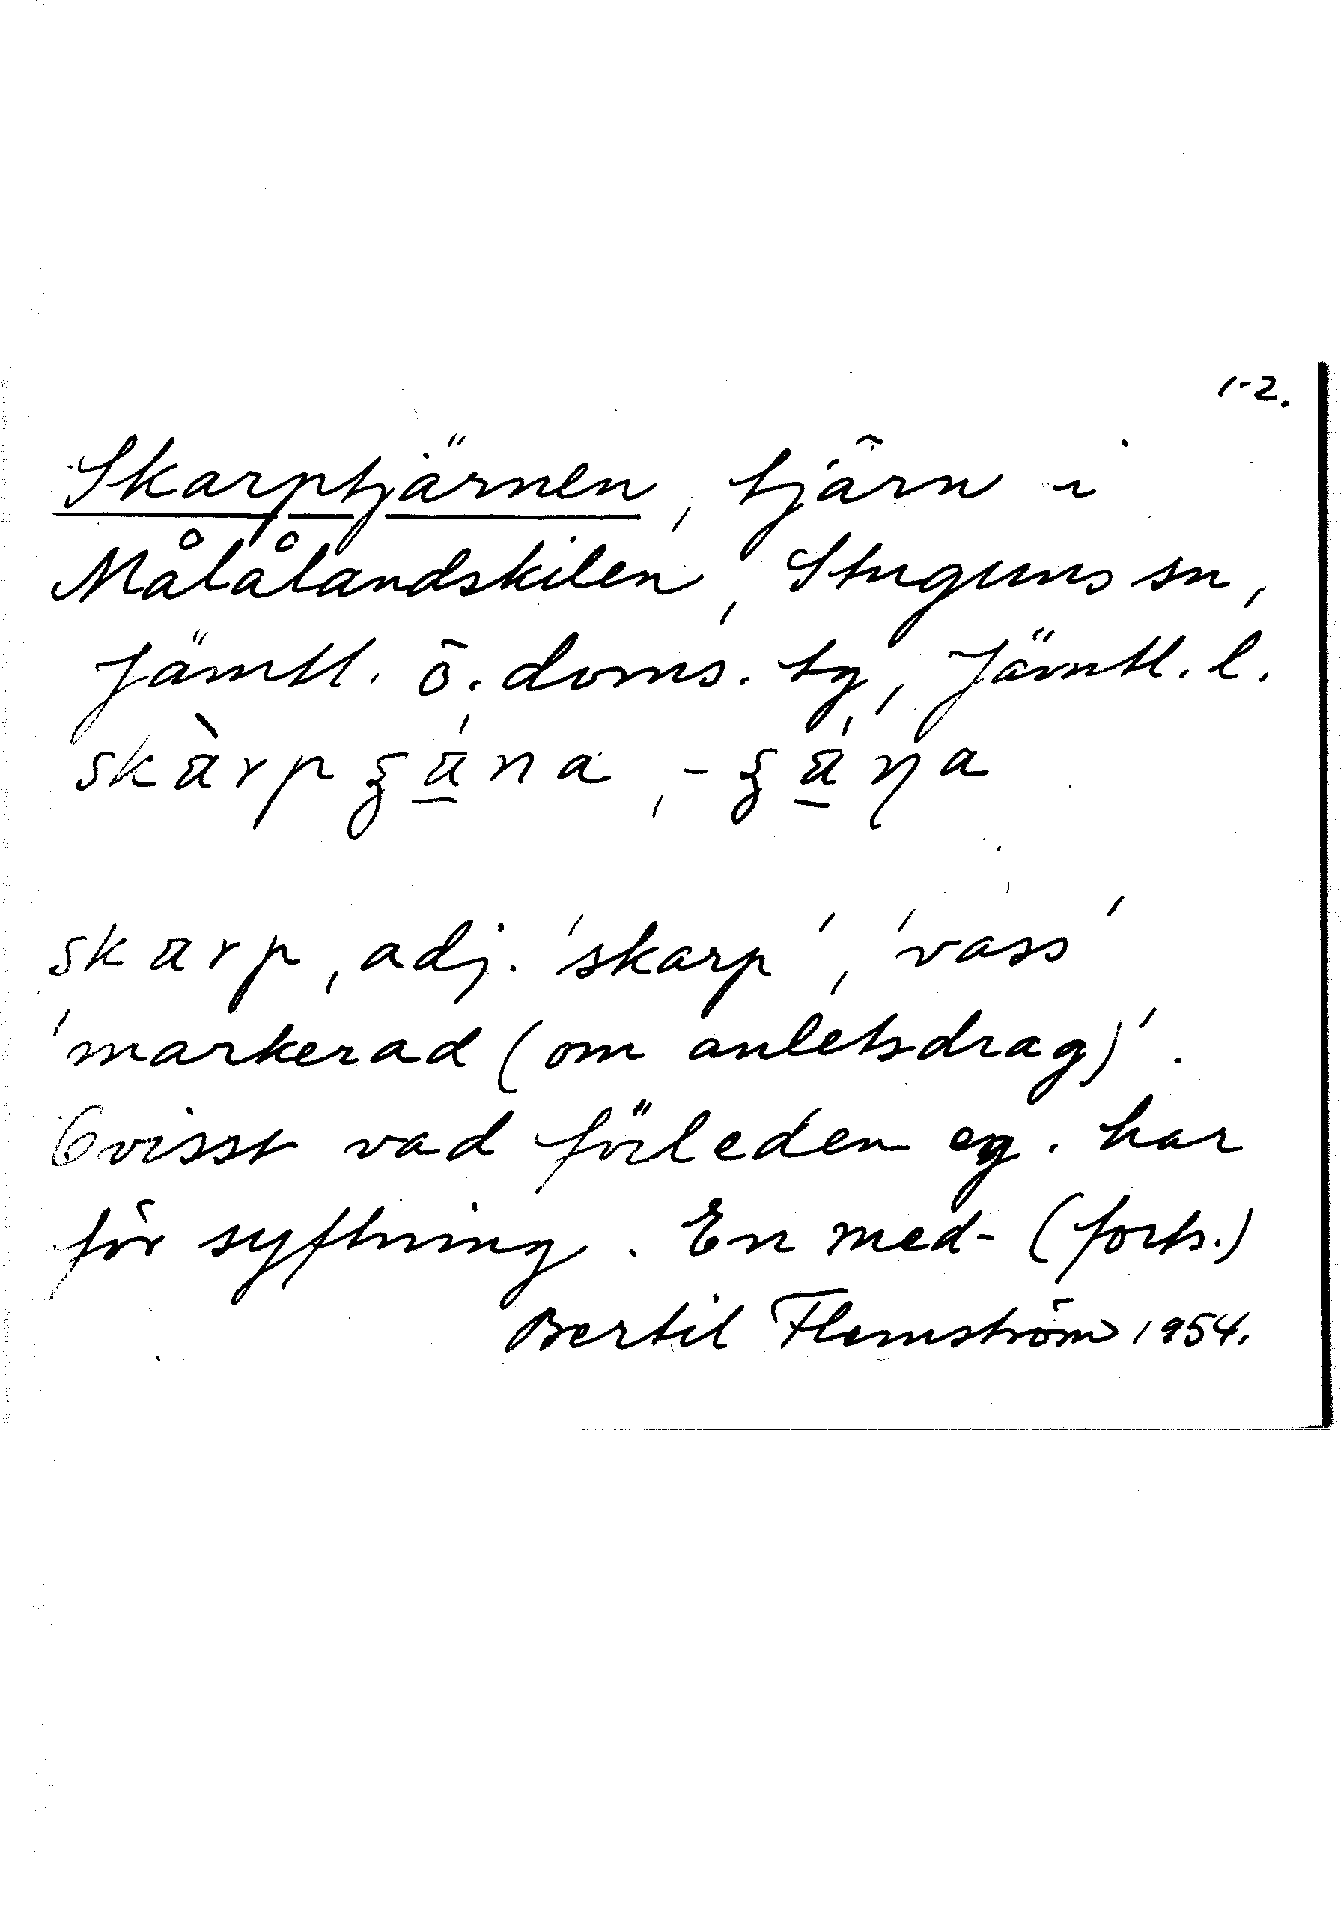 1-2.
Skarptjärnen, tjärn i
Målålandskilen, Stuguns sn,
Jämtl. ö. doms. tg, Jämtl. l.
skàrpʒá̲na, -ʒá̲ƞa
skarp, adj. 'skarp', 'vass'
'markerad (om anletsdrag)'.
Ovisst vad förleden eg. har
för syftning. En med- (forts.)
Bertil Flemström 1954.